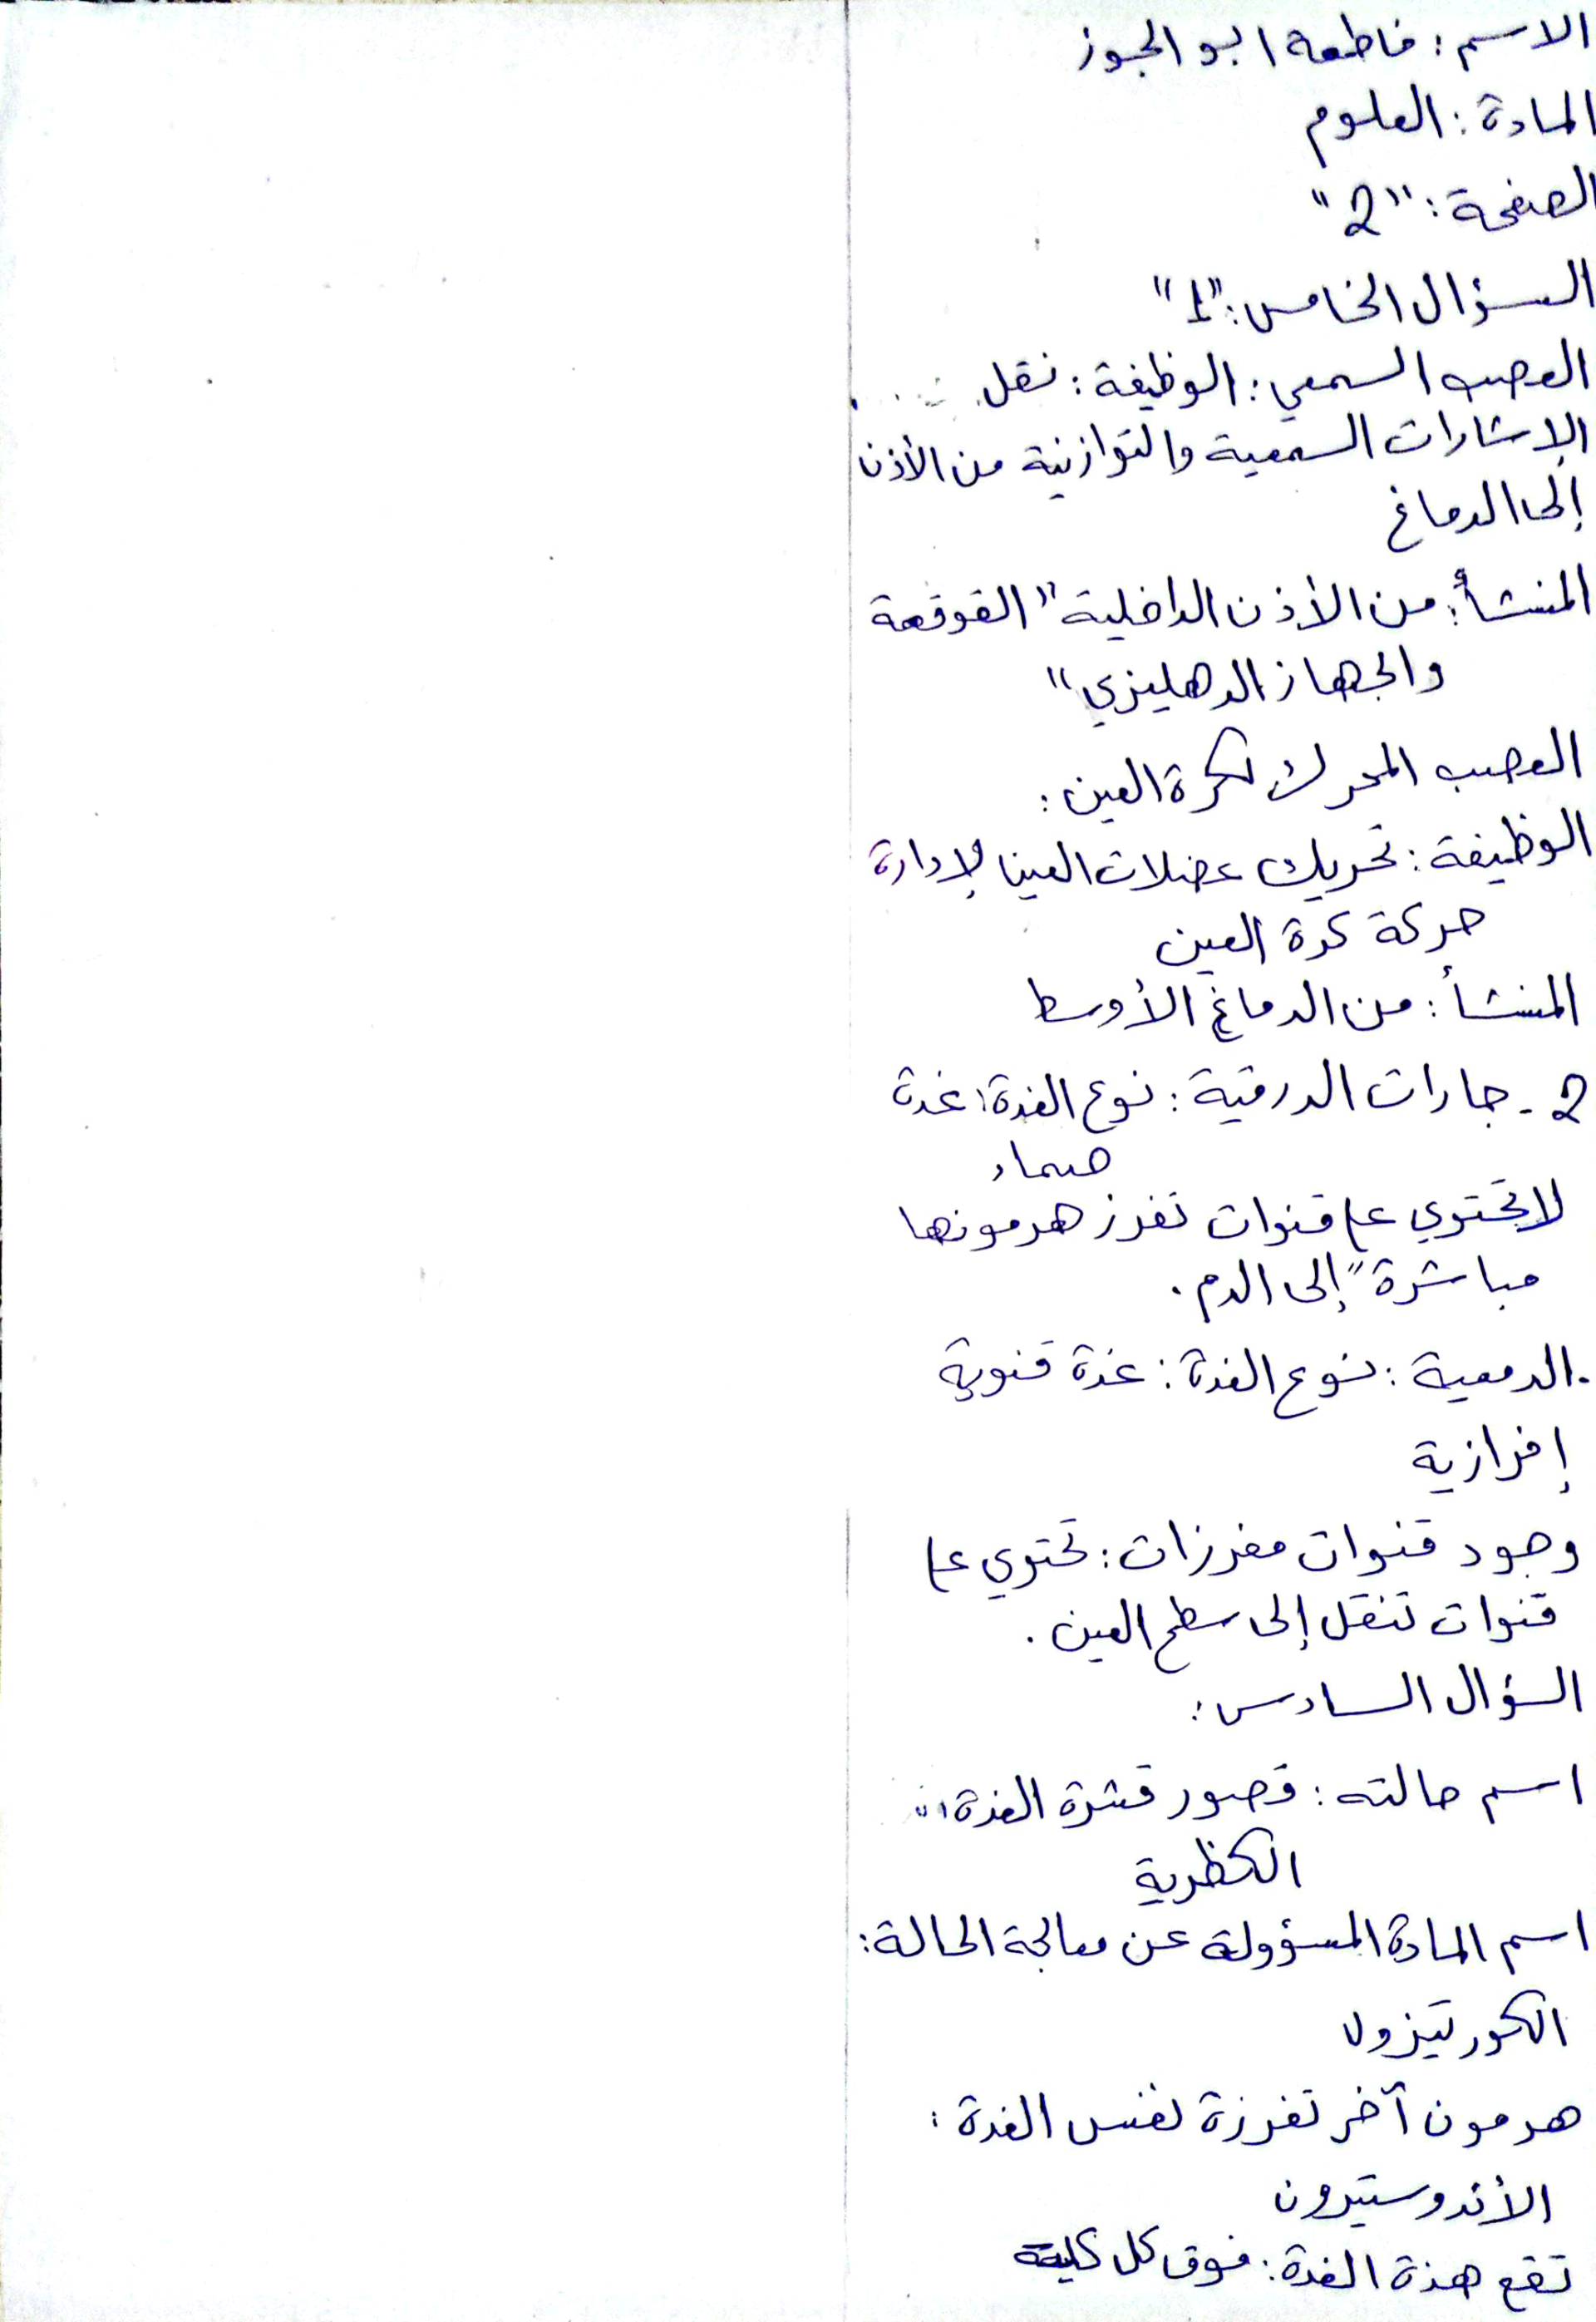 الاسم: فاطمة ابو الجوز
المادة: العلوم
الصفحة: "2"
السؤال الخامس: "1"
العصب السمعي: الوظيفة: نقل
الإشارات السمعية والتوازنية من الأذن
إلى الدماغ
المنشأ: من الأذن الداخلية "القوقعة
والجهاز الدهليزي"
العصب المحرك لكرة العين:
الوظيفة: تحريك عضلات العين لإدارة
حركة كرة العين
المنشأ: من الدماغ الأوسط
2- جارات الدرقية: نوع الغدة: غدة
صماء
لا تحتوي على قنوات تفرز هرمونها
مباشرة" إلى الدم.
.الدمعية: نوع الغدة: غدة قنوية
إفرازية
وجود قنوات مفرزات: تحتوي على
قنوات تنقل إلى سطح العين.
السؤال السادس:
اسم حالته: قصور قشرة الغدة
الكظرية
اسم المادة المسؤولة عن معالجة الحالة:
الكورتيزول
هرمون آخر تفرزة نفس الغدة:
الأندوستيرون
تقع هذة الغدة: فوق كل كلية